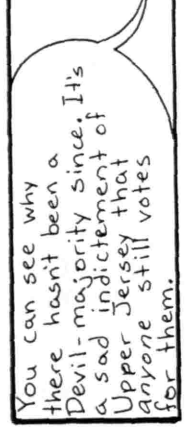 You can see why
there hasn't been a
Devil-majority since. It's
a sad indictement of
Upper Jersey that
anyone still votes
for them.